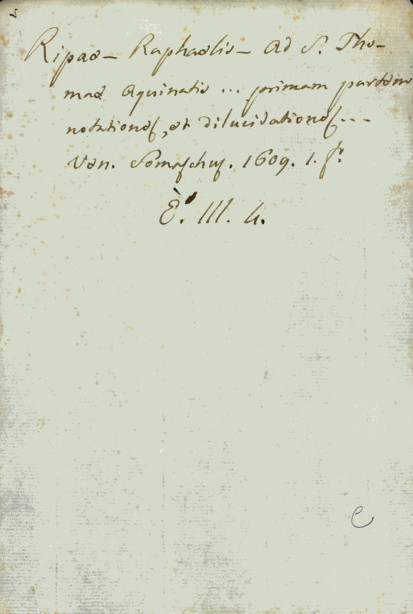 Ripae - Raphaelis - ad S. Tho-
mae Aquinatis ... primam partem
notationes, et dilucidationes ...
Ven. Somaschus. 1609. 1. fº.
È. III. 4.
e